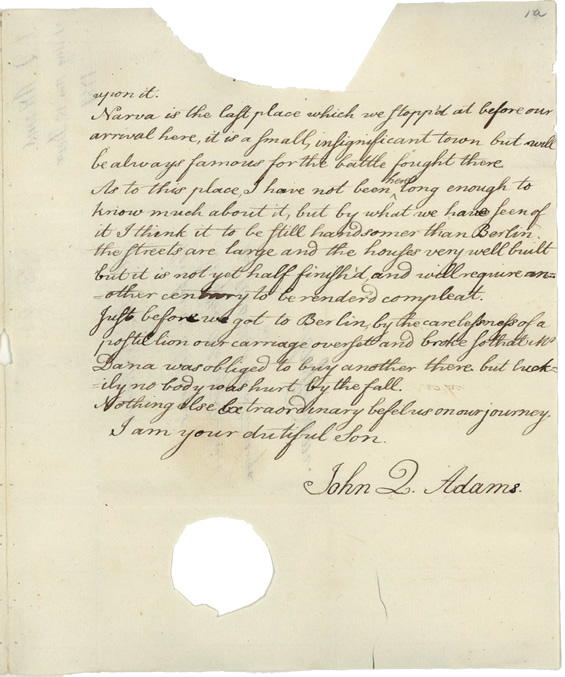 12
upon it.
Narva is the last place which we stopp'd at before our
arrival here, it is a small, insignificant town but will
be always famous for the battle fought there.
As to this place, I have not been here long enough to
know much about it, but by what we have seen of
it I think it to be still handsomer than Berlin.
the streets are large and the houses very well built
but it is not yet half finish'd, and will require an=
=other century to be render'd compleat.
Just before we got to Berlin, by the carelessness of a
postilion our carriage overset and broke so that Mr.
Dana was obliged to buy another there. but luck=
=ily no body was hurt by the fall.
Nothing else extraordinary befel us on our journey.
I am your dutiful Son.
John Q. Adams.